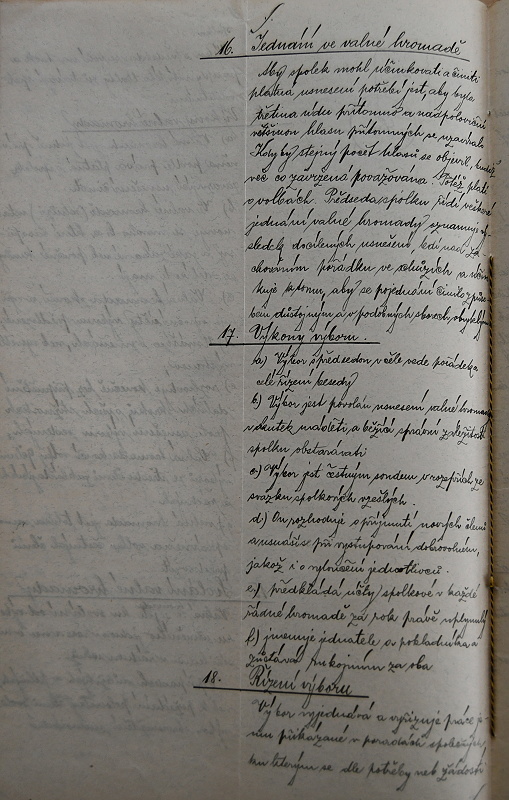 16. Jednání ve valné hromadě
Aby spolek mohl účinkovati a činiti
platná usnesení potřebí jest, aby byla
třetina údů přítomna a nadpoloviční
většinou hlasů přítomných se uzavíralo
Kdyby stejný počet hlasů se objevil, budiž
věc co zavržená považována. Totéž platí
o volbách. Předseda spolku řídí veškeré
jednání valné hromady oznamuje vý-
sledek docílených usnesení, bdí nad za-
chováním pořádku ve schůzích a účin-
kuje k tomu, aby se pojednání činilo způso-
bem důstojným a v podobných sborech obvyklým
17. Výkony výboru.
a) Výbor s předsedou v čele vede pořádek a
celé řízení besedy
b) Výbor jest povolán usnesení valné hromady
v skutek uváděti a běžící správní záležitosti
spolku obstarávati
c.) Výbor jest čestným soudem v rozepřích ze
svazku spolkových vzešlých.
d.) On rozhoduje o přijmutí nových členů
a usnáší se při vystupování dobrovolném,
jakož i o vyloučení jednotlivců.
e.) předkládá účty spolkové v každé
řádné hromadě za rok právě uplynulý
f.) jmenuje jednatele a pokladníka a
zůstává rukojmím za oba
18. Řízení výboru
Výbor vyjednává a vyřizuje práce je-
mu přikázané v poradách společných
ku kterým se dle potřeby neb žádosti